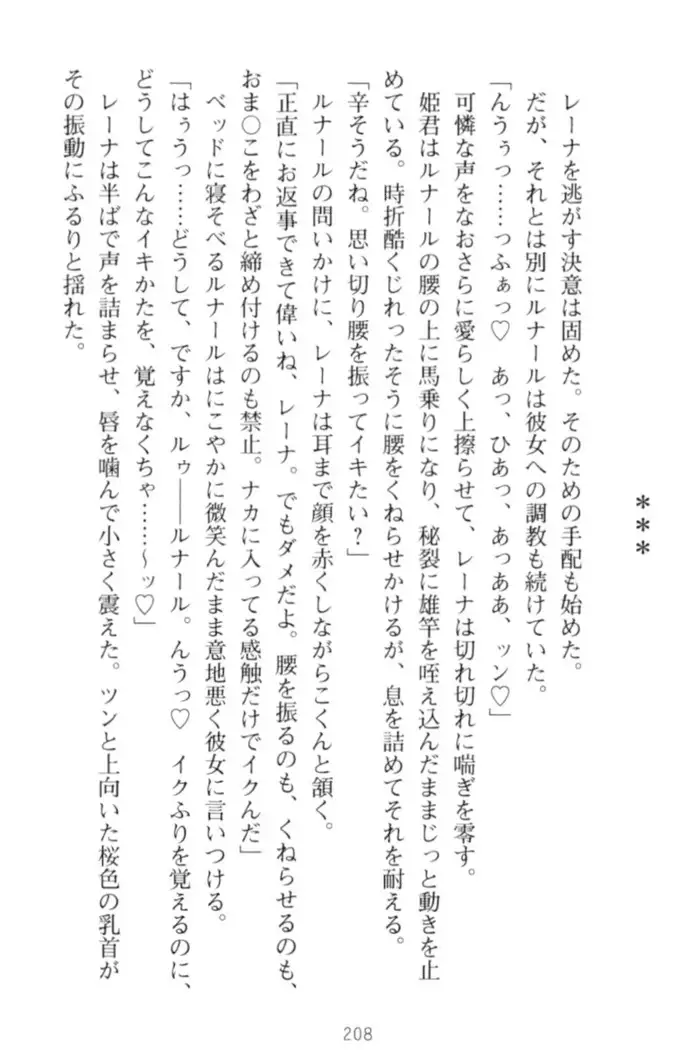 ***
レーナを逃がす決意は固めた。そのための手配も始めた。
だが、それとは別にルナールは彼女への調教も続けていた。
「んうぅっ……っふぁっ♡　あっ、ひあっ、あっああ、ッン♡」
可憐な声をなおさらに愛らしく上擦らせて、レーナは切れ切れに喘ぎを零す。
姫君はルナールの腰の上に馬乗りになり、秘裂に雄竿を咥え込んだままじっと動きを止
めている。時折酷くじれったそうに腰をくねらせかけるが、息を詰めてそれを耐える。
「辛そうだね。思い切り腰を振ってイキたい？」
ルナールの問いかけに、レーナは耳まで顔を赤くしながらこくんと頷く。
「正直にお返事できて偉いね、レーナ。でもダメだよ。腰を振るのも、くねらせるのも、
おま○こをわざと締め付けるのも禁止。ナカに入ってる感触だけでイクんだ」
ベッドに寝そべるルナールはにこやかに微笑んだまま意地悪く彼女に言いつける。
「はぅうっ……どうして、ですか、ルゥ――ルナール。んうっ♡　イクふりを覚えるのに、
どうしてこんなイキかたを、覚えなくちゃ……～ッ♡」
レーナは半ばで声を詰まらせ、唇を噛んで小さく震えた。ツンと上向いた桜色の乳首が
その振動にふるりと揺れた。
208